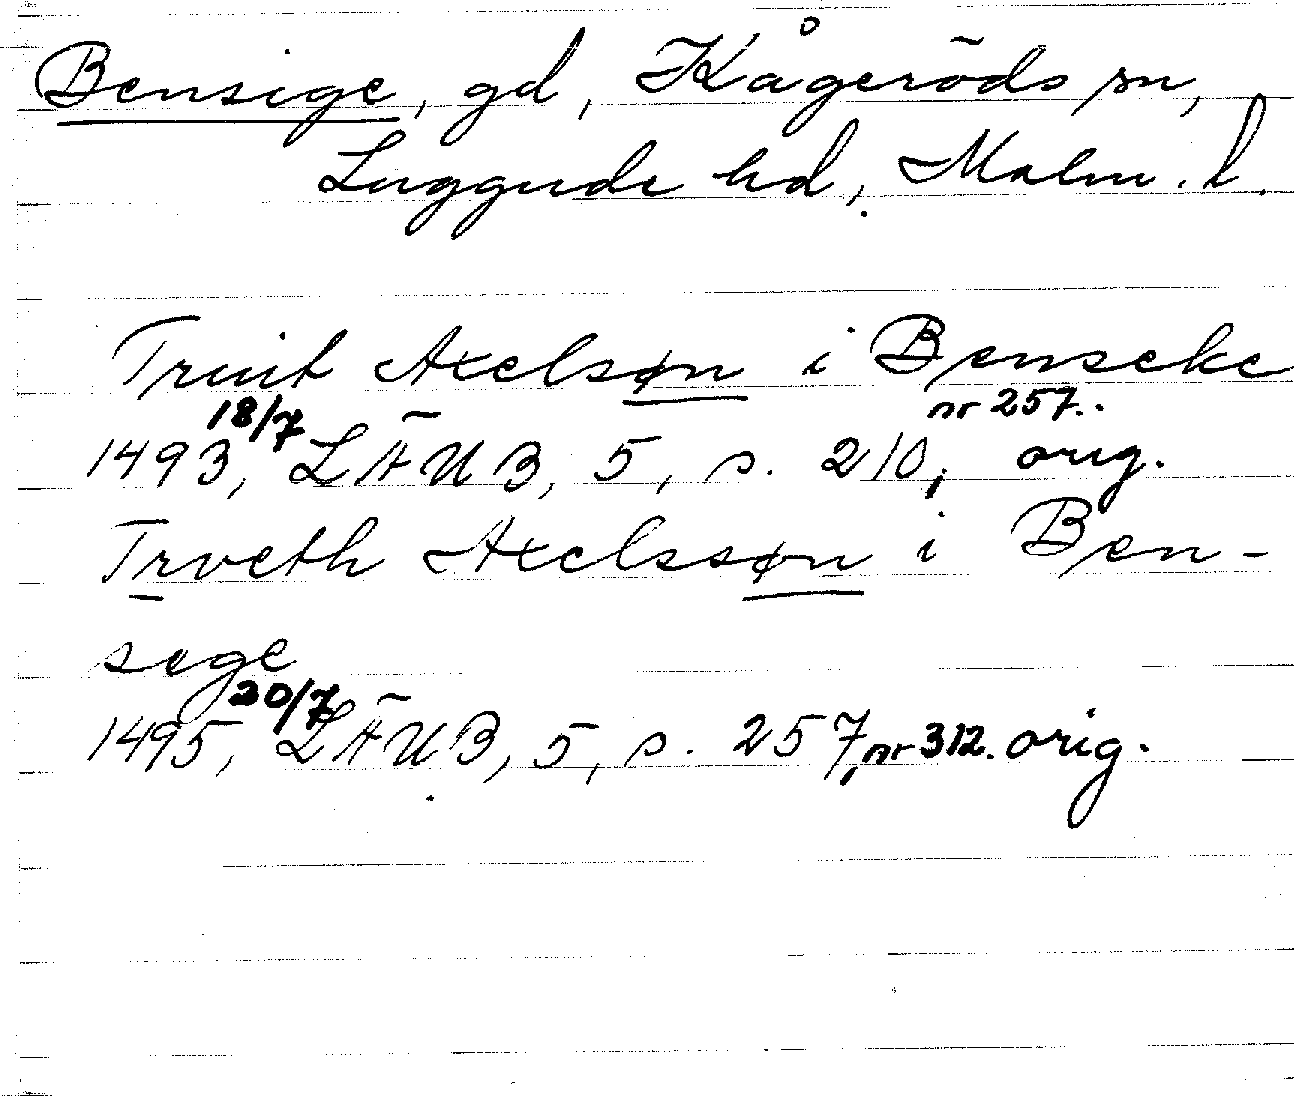 Bensige, gd, Kågeröds sn,
Luggude hd, Malm. l.
Truit Axelsøn i Benseke
1493, 18/7 LÄUB, 5, s. 210, nr 257. orig.
Trveth Axelssøn i Ben-
sege
1495, 20/7 LÄUB, 5, s. 257, nr 312. orig.